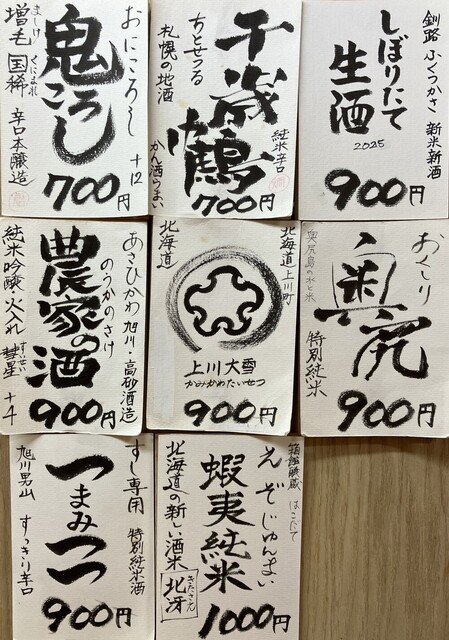 おにころし
+12
鬼ころし
ましけ
増毛
くにまれ
国稀
辛口本醸造
700円
千歳鶴
純米辛口
ちとせつる
札幌の地酒
かん酒うまい
700円
釧路 ふくつかさ 新米新酒
しぼりたて
生酒
2025
900円
あさひかわ 旭川・高砂酒造
のうかのさけ
農家の酒
純米吟醸・火入れ
すいせい
彗星
+4
900円
北海道上川町
北海道
上川大雪
かみかわたいせつ
900円
おくしり
奥尻
特別純米
奥尻島の水と米
900円
すし専用 特別純米酒
つまみつつ
旭川男山 すっきり辛口
900円
箱館醸蔵 はこだて
えぞじゅんまい
蝦夷純米
北海道の新しい酒米
きたさえ
北冴
1000円